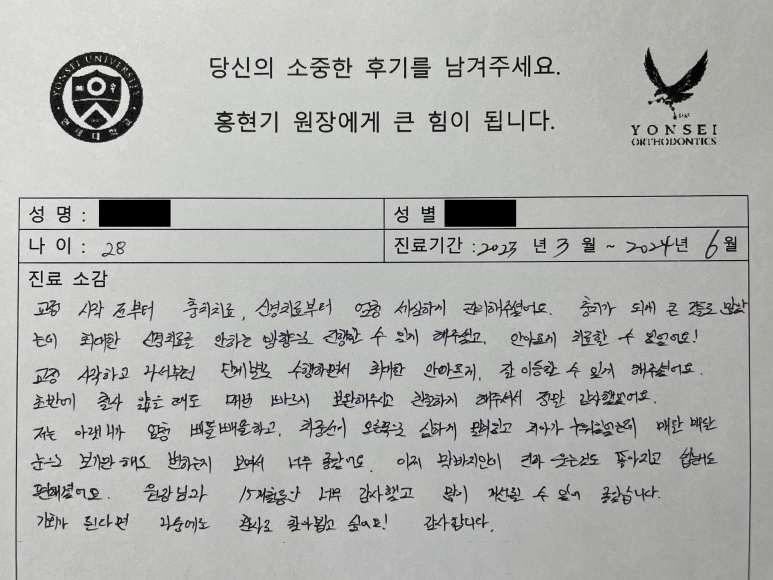 YONSEI UNIVERSITY
연세대학교
당신의 소중한 후기를 남겨주세요.
홍현기 원장에게 큰 힘이 됩니다.
YONSEI
ORTHODONTICS
성 명 :
성 별
나 이 : 28
진료기간 : 2023 년 3 월 ~ 2024년 6월
진료 소감
교정 시작 전부터 충치치료, 신경치료부터 엄청 세심하게 관리해주셨어요. 충치가 되게 큰
는데 최대한 신경치료를 안하는 방향으로 진행할 수 있게 해주셨고, 안아프게 치료할 수 있었어요!
교정 시작하고 나서부턴 단계별로 수행하면서 최대한 안아프게, 잘 이동할 수 있게 해주셨어요.
초반에 출사 않은 해도 매번 빠르게 보완해주시고 친절하게 해주셔서 정말 감사했었어요.
저는 아랫니가 엄청 삐뚤빼뚤하고, 중심선이 오른쪽으로 심하게 치아가 매달 매달
눈으로 보기만 해도 변하는게 보여서 너무 좋았어요. 이제 막바지인데 웃는것도 좋아지고
편해졌어요. 원장님과 15개월동안 너무 감사했고 많이 개선될 수 있어 좋았습니다.
기회가 된다면 나중에도 감사로 찾아뵙고 싶어요! 감사합니다.